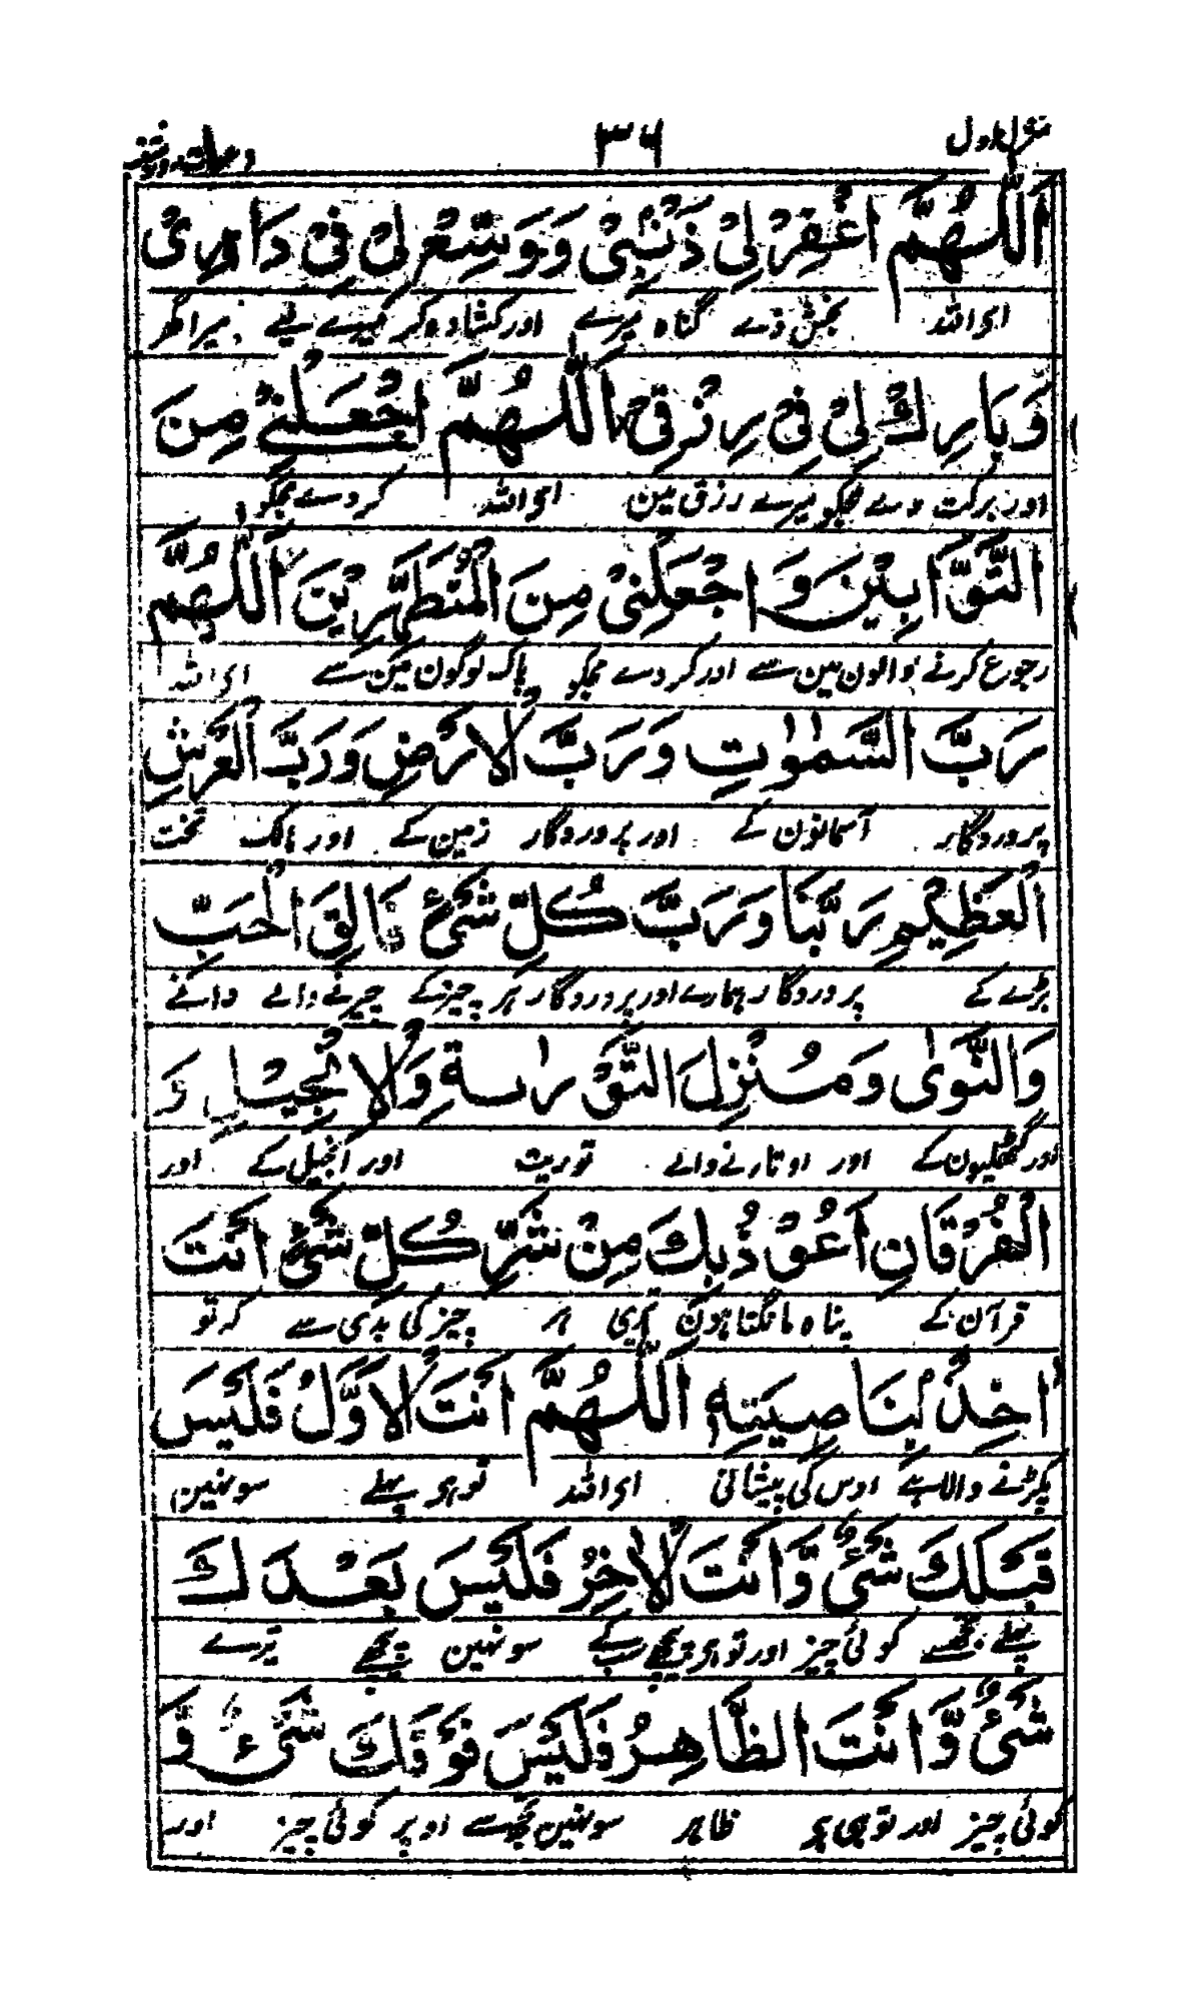 منزل اول ۳۶ دعوات
اَللّٰهُمَّ اغْفِرْ لِیْ ذَنْۢبِیْ وَوَسِّعْ لِیْ فِیْ دَارِیْ
ای اللہ بخش دے گناہ میرے اور کشادہ کر میرے لیے میرا گھر
وَبَارِكْ لِیْ فِیْ رِزْقِیْ اَللّٰهُمَّ اجْعَلْنِیْ مِنَ
اور برکت دے مجکو میرے رزق مین ای اللہ کر دے مجکو
التَّوَّابِیْنَ وَاجْعَلْنِیْ مِنَ الْمُتَطَهِّرِیْنَ اَللّٰهُمَّ
رجوع کرنے والون مین سے اور کر دے مجکو پاک لوگون مین سے ای اللہ
رَبَّ السَّمٰوٰتِ وَرَبَّ الْاَرْضِ وَرَبَّ الْعَرْشِ
پروردگار آسمانون کے اور پروردگار زمین کے اور مالک تخت
الْعَظِیْمِ رَبَّنَا وَرَبَّ كُلِّ شَیْءٍ فَالِقَ الْحَبِّ
بڑے کے پروردگار ہمارے اور پروردگار ہر چیز کے چیرنے والے دانے
وَالنَّوٰى وَمُنْزِلَ التَّوْرٰىةِ وَالْاِنْجِیْلِ وَ
اور گٹھلیون کے اور اوتارنے والے توریت اور انجیل کے اور
الْفُرْقَانِ اَعُوْذُ بِكَ مِنْ شَرِّ كُلِّ شَیْءٍ اَنْتَ
قرآن کے پناہ مانگتا ہون تیری ہر چیز کی بدی سے کہ تو
اٰخِذٌۢ بِنَاصِیَتِهٖ اَللّٰهُمَّ اَنْتَ الْاَوَّلُ فَلَیْسَ
پکڑنے والا ہے اوس کی پیشانی ای اللہ تو ہی پہلے سو نہین
قَبْلَكَ شَیْءٌ وَّاَنْتَ الْاٰخِرُ فَلَیْسَ بَعْدَكَ
پہلے تجھسے کوئی چیز اور تو ہی پیچھے سب کے سو نہین پیچھے تیرے
شَیْءٌ وَّاَنْتَ الظَّاهِرُ فَلَیْسَ فَوْقَكَ شَیْءٌ وَّ
کوئی چیز اور تو ہی ہی ظاہر سو نہین تجھسے اوپر کوئی چیز اور